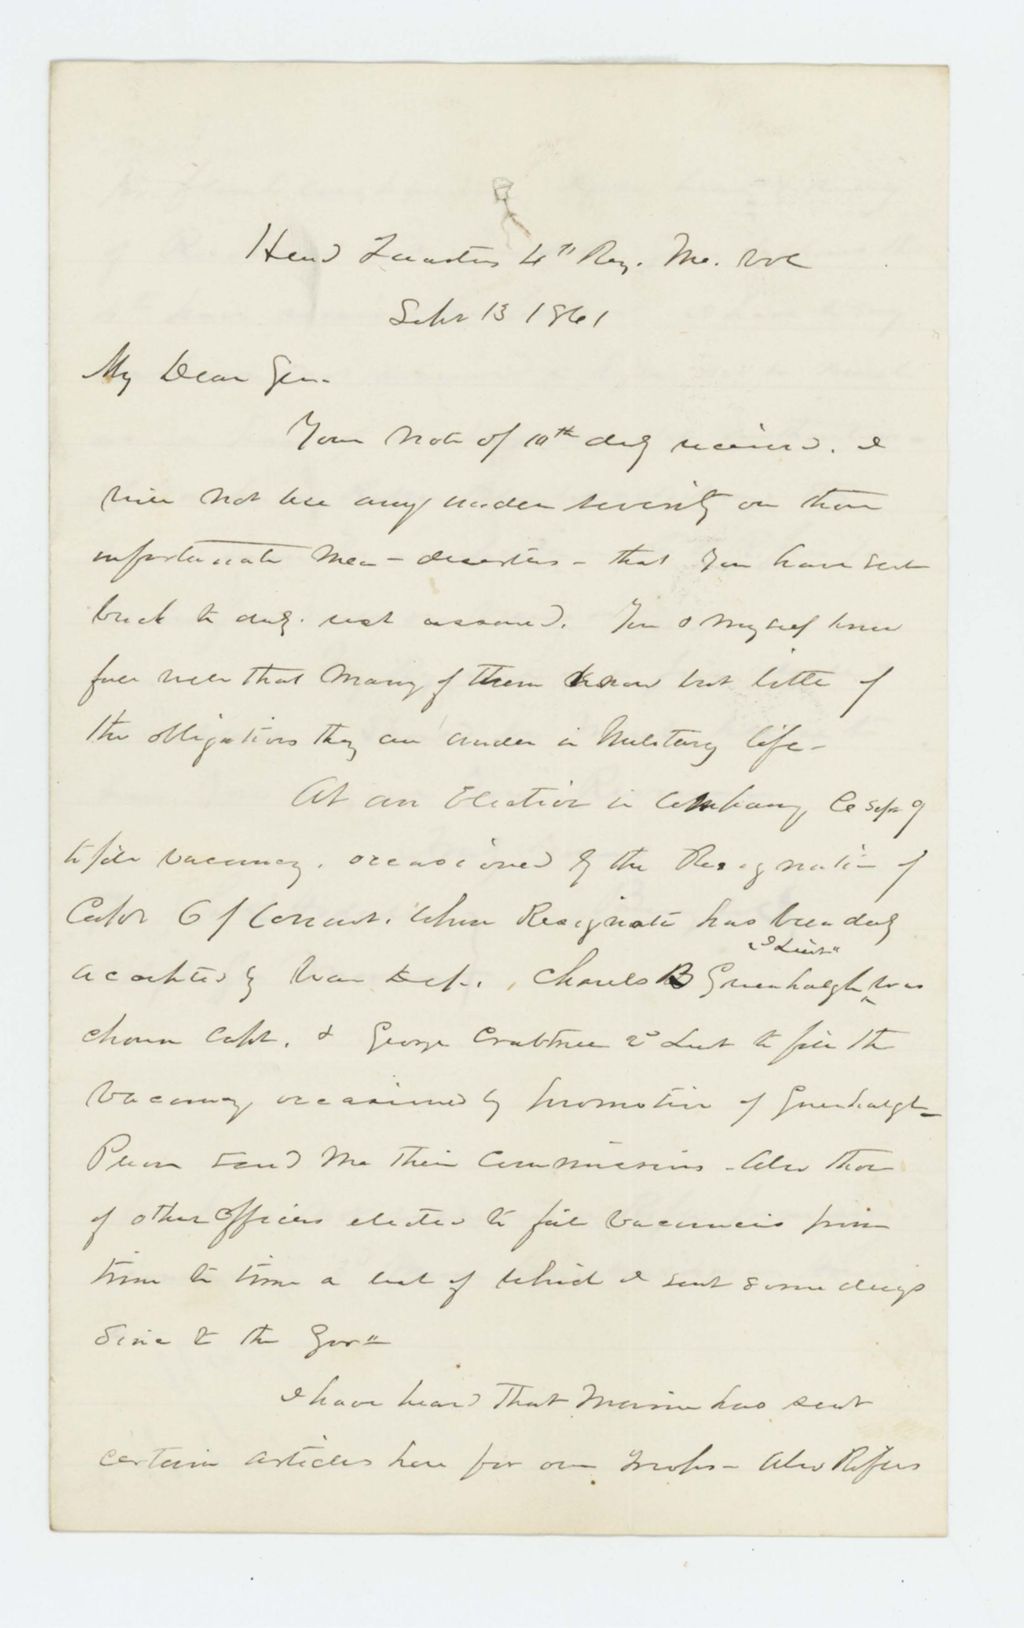 Head Quarters 4th Reg. Me. Vol
Sept 13 1861
My Dear Gen.
Your note of 10th duly received. I
will not use any undue severity on those
unfortunate men - deserters - that you have sent
back to duty. rest assured. You & myself know
full well that many of them know but little of
the obligations they are under in Military life -
At an Election in Company Co Sept 9
to fill vacancy, occasioned by the Resignation of
Capt O J Conant. Whose Resignation has been duly
accepted by War Dep.. Charles B Greenhalgh was
2d Lieut"
chosen Capt. & George Crabtree 2d Lieut to fill the
Vacancy occasioned by promotion of Greenhalgh -
Please send me their Commissions - Also those
of other officers elected to fill vacancies from
time to time a list of which I sent some days
since to the Govn
I have heard that Maine has sent
certain articles here for our Troops - Also Rifles